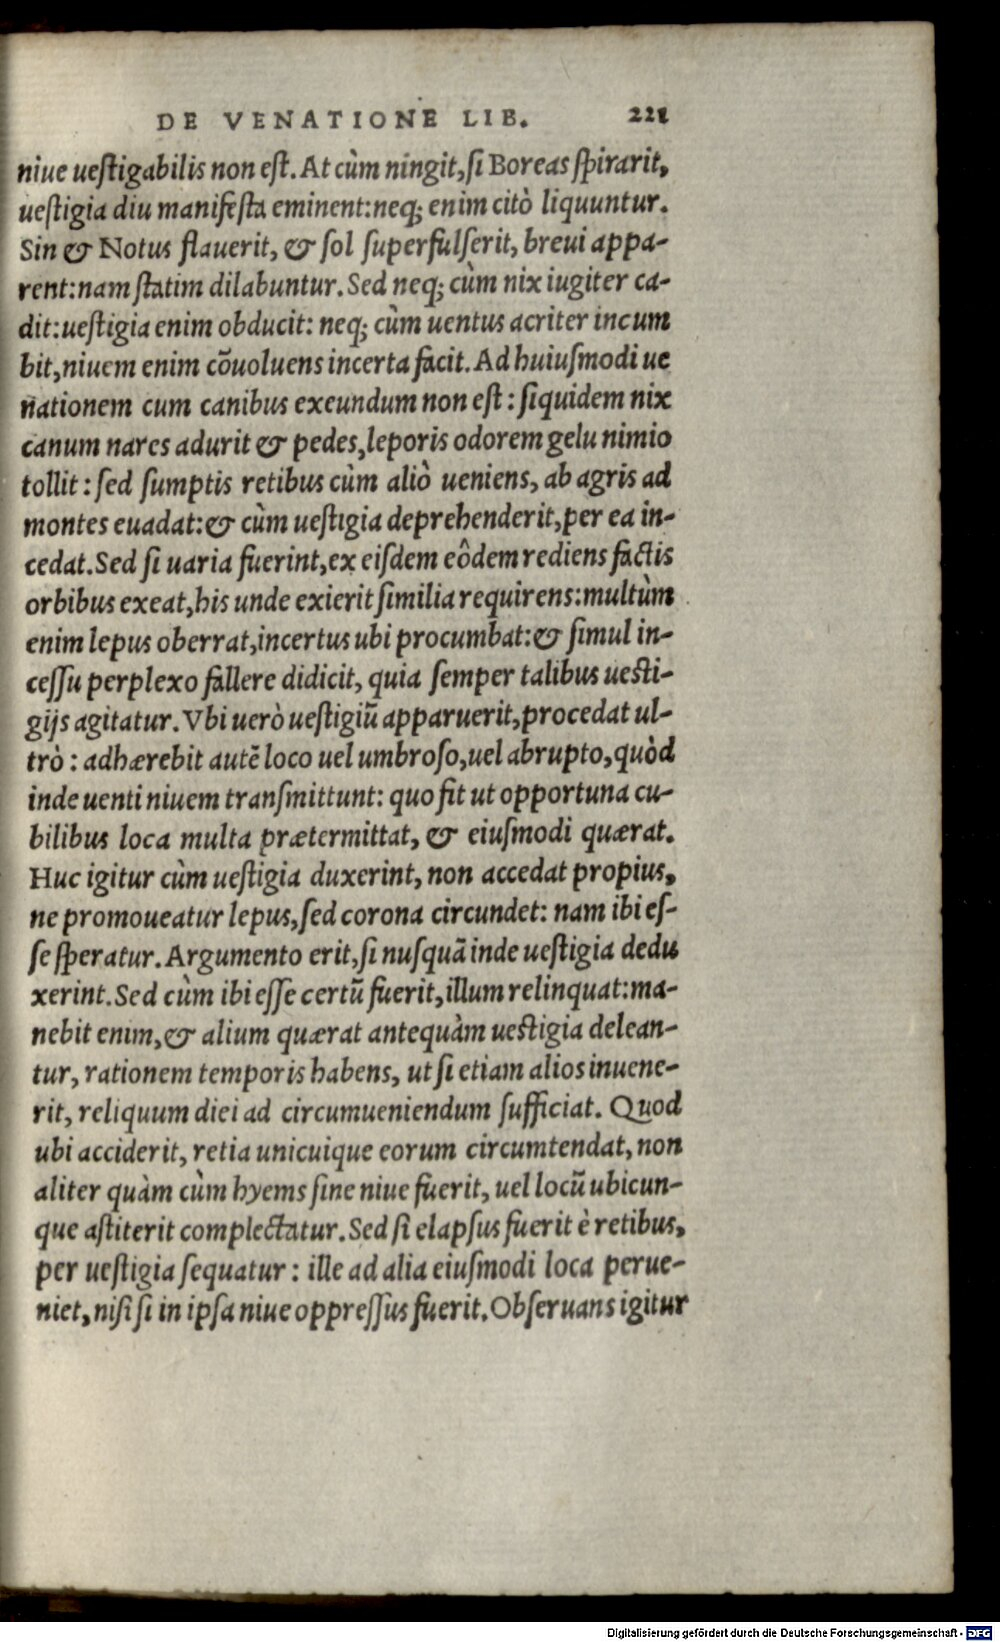 DE VENATIONE LIB. 221
niue uestigabilis non est. At cùm ningit, si Boreas spirarit,
uestigia diu manifesta eminent: neq; enim citò liquuntur.
Sin & Notus flauerit, & sol superfulserit, breui appa-
rent: nam statim dilabuntur. Sed neq; cùm nix iugiter ca-
dit: uestigia enim obducit: neq; cùm uentus acriter incum
bit, niuem enim cõuoluens incerta facit. Ad huiusmodi ue
nationem cum canibus exeundum non est: siquidem nix
canum nares adurit & pedes, leporis odorem gelu nimio
tollit: sed sumptis retibus cùm aliò ueniens, ab agris ad
montes euadat: & cùm uestigia deprehenderit, per ea in-
cedat. Sed si uaria fuerint, ex eisdem eôdem rediens factis
orbibus exeat, his unde exierit similia requirens: multùm
enim lepus oberrat, incertus ubi procumbat: & simul in-
cessu perplexo fallere didicit, quia semper talibus uesti-
gijs agitatur. Vbi uerò uestigiũ apparuerit, procedat ul-
trò: adhærebit autẽ loco uel umbroso, uel abrupto, quòd
inde uenti niuem transmittunt: quo fit ut opportuna cu-
bilibus loca multa prætermittat, & eiusmodi quærat.
Huc igitur cùm uestigia duxerint, non accedat propius,
ne promoueatur lepus, sed corona circundet: nam ibi es-
se speratur. Argumento erit, si nusquã inde uestigia dedu
xerint. Sed cùm ibi esse certũ fuerit, illum relinquat: ma-
nebit enim, & alium quærat antequàm uestigia delean-
tur, rationem temporis habens, ut si etiam alios inuene-
rit, reliquum diei ad circumueniendum sufficiat. Quod
ubi acciderit, retia unicuique eorum circumtendat, non
aliter quàm cùm hyems sine niue fuerit, uel locũ ubicun-
que astiterit complectatur. Sed si elapsus fuerit è retibus,
per uestigia sequatur: ille ad alia eiusmodi loca perue-
niet, nisi si in ipsa niue oppressus fuerit. Obseruans igitur
Digitalisierung gefördert durch die Deutsche Forschungsgemeinschaft - DFG